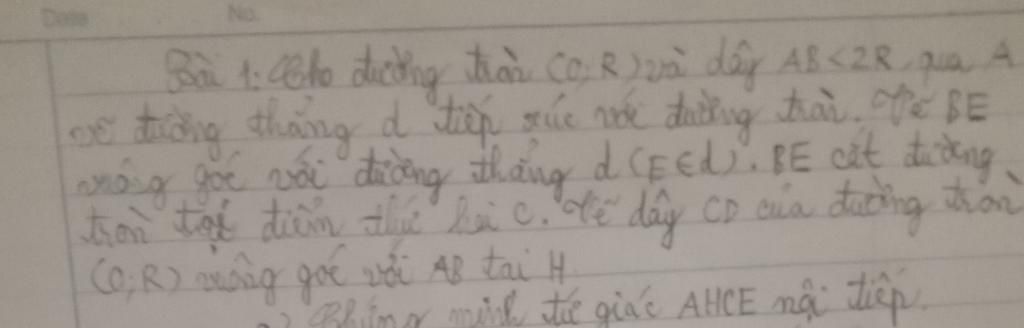 Date No.
Bài 1: Cho đường tròn (O; R) và dây AB < 2R, qua A
vẽ đường thẳng d tiếp xúc với đường tròn. Vẽ BE
vuông góc với đường thẳng d (E∈d). BE cắt đường
tròn tại điểm thứ hai C. Vẽ dây CD của đường tròn
(O; R) vuông góc với AB tại H
a) Chứng minh tứ giác AHCE nội tiếp.